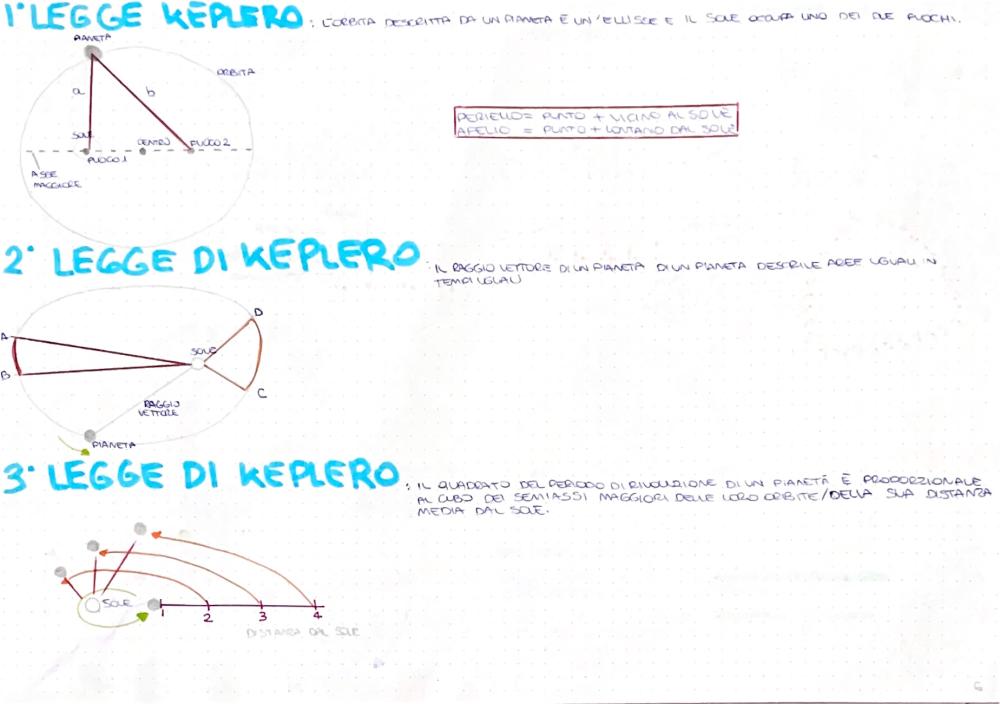 1° LEGGE KEPLERO: L'ORBITA DESCRITTA DA UN PIANETA È UN'ELLISSE E IL SOLE OCCUPA UNO DEI DUE FUOCHI.
PIANETA
ORBITA
a
b
SOLE
FUOCO 1
CENTRO
FUOCO 2
ASSE
MAGGIORE
PERIELIO = PUNTO + VICINO AL SOLE
AFELIO = PUNTO + LONTANO DAL SOLE
2° LEGGE DI KEPLERO: IL RAGGIO VETTORE DI UN PIANETA DI UN PIANETA DESCRIVE AREE UGUALI IN
TEMPI UGUALI
A
B
SOLE
D
C
RAGGIO
VETTORE
PIANETA
3° LEGGE DI KEPLERO: IL QUADRATO DEL PERIODO DI RIVOLUZIONE DI UN PIANETA È PROPORZIONALE
AL CUBO DEI SEMIASSI MAGGIORI DELLE LORO ORBITE/DELLA SUA DISTANZA
MEDIA DAL SOLE.
SOLE
1 2 3 4
DISTANZA DAL SOLE
6